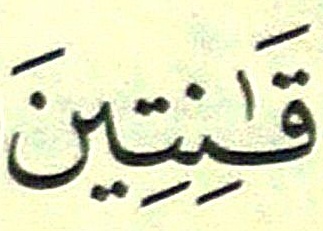 قَٰنِتِينَ